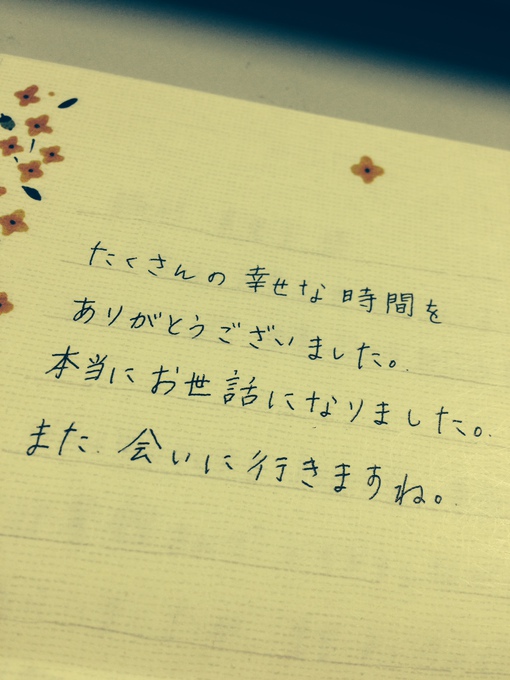 たくさんの幸せな時間を
ありがとうございました。
本当にお世話になりました。
また、会いに行きますね。